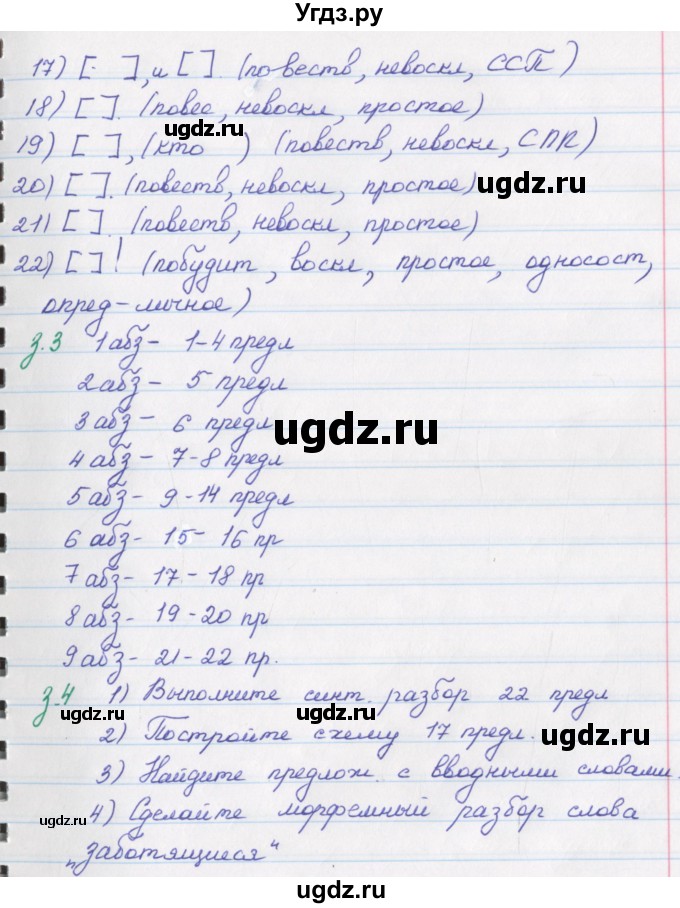 Угдз.ру
17) [ ], и [ ]. (повеств, невоскл, ССП)
18) [ ]. (повес, невоскл, простое)
ugdz.ru ugdz.ru
19) [ ], (кто ) (повеств, невоскл, СПП)
20) [ ]. (повеств, невоскл, простое)
ugdz.ru
21) [ ]. (повеств, невоскл, простое)
22) [ ]! (побудит, воскл, простое, односост,
опред-личное)
з.3 1 абз - 1-4 предл
2 абз - 5 предл
3 абз - 6 предл
ugdz.ru
4 абз - 7-8 предл
5 абз - 9-14 предл
6 абз - 15-16 пр
7 абз - 17-18 пр
8 абз - 19-20 пр
9 абз - 21-22 пр.
з.4 1) Выполните синт. разбор 22 предл
ugdz.ru ugdz.ru
2) Постройте схему 17 предл.
ugdz.ru
3) Найдите предлож. с вводными словами.
4) Сделайте морфемный разбор слова
ugdz.ru
„заботящиеся“
ugdz.ru